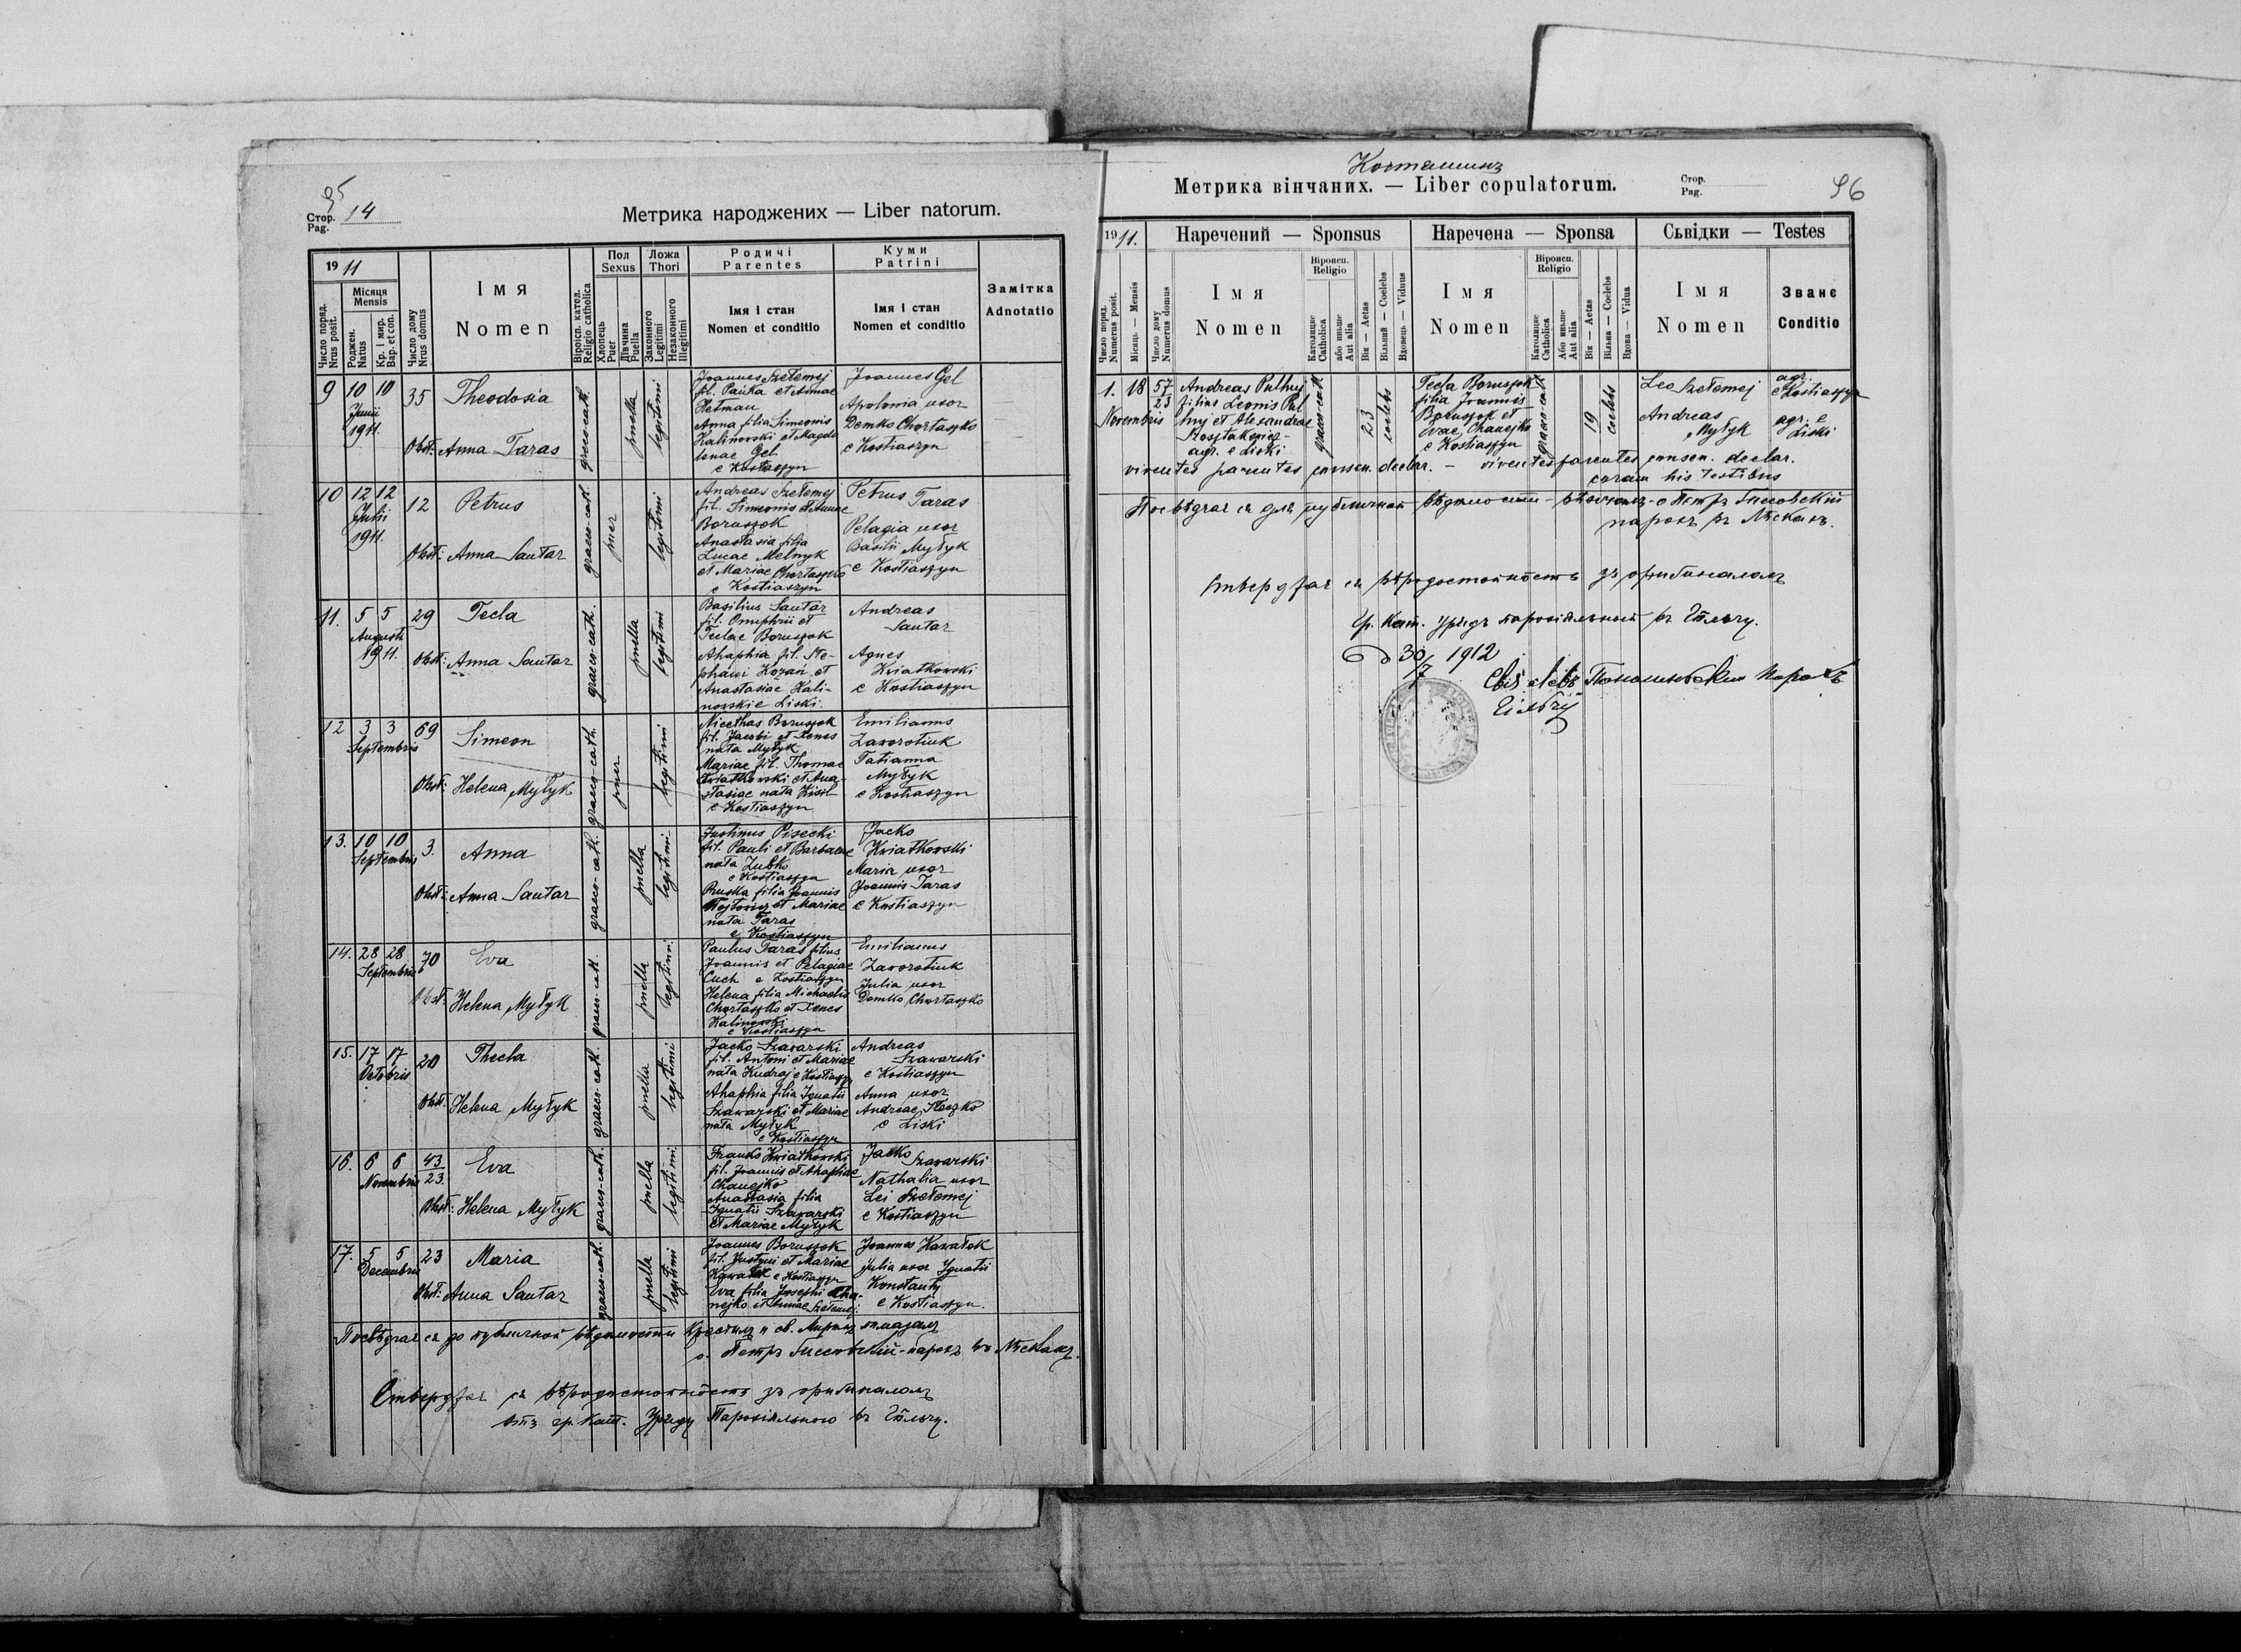 95
Стор. 14
Pag.
Метрика народжених — Liber natorum.
19 11
Число поряд.
Nrus posit.
Місяця
Mensis
Роджен.
Natus
Кр. і мир.
Bap. et con.
Число дому
Nrus domus
Імя
Nomen
Віроісп. катол.
Religio catholica
Пол
Sexus
Хлопець
Puer
Дівчина
Puella
Ложа
Thori
Законного
Legitimi
Незаконного
Illegitimi
Родичі
Parentes
Імя і стан
Nomen et conditio
Куми
Patrini
Імя і стан
Nomen et conditio
Замітка
Adnotatio
9 10 10 35 Theodosia
Junii
1911.
Obst: Anna Taras
graeco-cath.
puella
legitimi
Joannes Szełemej
fil. Pańka et Annae
Hetman
Anna filia Simeonis
Kalinowski et Magda
lenae Gel
e Kostiaszyn
Joannes Gel
Apolonia uxor
Demko Chortaszko
e Kostiaszyn
10 12 12 12 Petrus
Julii
1911.
Obst: Anna Sautar
graeco-cath.
puer
legitimi
Andreas Szełemej
fil. Simeonis et Annae
Boruszok
Anastasia filia
Lucae Melnyk
et Mariae Chortaszko
e Kostiaszyn
Petrus Taras
Pelagia uxor
Basilii Mytyk
e Kostiaszyn
11. 5 5 29 Tecla
Augusti
1911.
Obst: Anna Sautar
graeco-cath.
puella
legitimi
Basilius Sautar
fil. Onuphrii et
Teclae Boruszok
Ahaphia fil. Ste-
phani Kozań et
Anastasiae Kali-
nowski e Liski.
Andreas
Sautar
Agnes
Kwiatkowski
e Kostiaszyn
12 3 3 69 Simeon
Septembris
Obst: Helena Mytyk
graeco-cath.
puer
legitimi
Nicethas Boruszok
fil. Jacobi et Xenes
nata Mytyk
Mariae fil. Thomae
Kwiatkowski et Ana-
stasiae nata Kisil
e Kostiaszyn
Emilianus
Zaworotiuk
Tatianna
Mytyk
e Kostiaszyn
13. 10 10 3. Anna
Septembris
Obst: Anna Sautar
graeco-cath.
puella
legitimi
Justinus Pisecki
fil. Pauli et Barbarae
nata Zubko
e Kostiaszyn
Pruska filia Joannis
Wojtowicz et Mariae
nata Taras
e Kostiaszyn
Jacko
Kwiatkowski
Maria uxor
Joannis Taras
e Kostiaszyn
14. 28 28 70 Eva
Septembris
Obst: Helena Mytyk
graeco-cath.
puella
legitimi
Paulus Taras filius
Joannis et Pelagiae
Cuch e Kostiaszyn
Helena filia Michaelis
Chortaszko et Xenes
Kalinowski
e Kostiaszyn
Emilianus
Zaworotiuk
Julia uxor
Demko Chortaszko
15. 17 17 20 Thecla
Octobris
Obst: Helena Mytyk
graeco-cath.
puella
legitimi
Jacko Szawarski
fil. Antoni et Mariae
nata Kudraj e Kostiaszyn
Ahaphia filia Ignatii
Szawarski et Mariae
nata Mytyk
e Kostiaszyn
Andreas
Szawarski
e Kostiaszyn
Anna uxor
Andreae Steczko
e Liski
16. 6 6 43
23. Eva
Novembris
Obst: Helena Mytyk
graeco-cath.
puella
legitimi
Franko Kwiatkowski
fil. Joannis et Ahaphiae
Chanejko
Anastasia filia
Ignatii Szawarski
et Mariae Mytyk
Jacko
Szawarski
Nathalia uxor
Lei Szełemej
e Kostiaszyn
17. 5 5 23 Maria
Decembris
Obst: Anna Sautar
graeco-cath.
puella
legitimi
Joannes Boruszok
fil. Justyni et Mariae
Kawałek e Kostiaszyn
Eva filia Josephi Cha-
nejko et Annae Szełemej.
Joannes Kawałek
Julia uxor Ignatii
Konstanty
e Kostiaszyn.
Посвѣдчає ся до публичной вѣдомости Крестилъ и св. Миромъ помазалъ
о. Петръ Биссовскій - парохъ въ Лѣскахъ.
Стверджає ся вѣродостойность зъ оригиналомъ
Отъ гр. кат. Уряду Парохіяльного въ Ѣльчу.
Костяшинъ
Метрика вінчаних. — Liber copulatorum.
Стор.
Pag.
96
19 11.
Число поряд.
Numerus posit.
Місяць — Mensis
Число дому
Numerus domus
Наречений — Sponsus
Імя
Nomen
Віроисп.
Religio
Католицке
Catholica
або иньше
Aut alia
Вік — Aetas
Вільний — Coelebs
Вдовець — Viduus
Наречена — Sponsa
Імя
Nomen
Віроисп.
Religio
Католицке
Catholica
Або иньше
Aut alia
Вік — Aetas
Вільна — Coelebs
Вдова — Vidua
Сьвідки — Testes
Імя
Nomen
Званє
Conditio
1. 18 57
23
Novembris
Andreas Pulhuj
filius Leonis Pul
huj et Alexandrae
agr. e Liski
graeco-cath.
23
coelebs
Tecla Boruszok
filia Joannis
Boruszok et
Evae Chanejko
e Kostiaszyn
graeco-cath.
19
coelebs
Leo Szełemej
agr.
e Kostiaszyn
Andreas
Mytyk
agr. e
Liski
viventes parentes consen. declar. - viventes parentes consen. declar.
coram his testibus
Посвѣдчає ся для публичной вѣдомости - вѣнчалъ - о Петръ Биссовскій
парохъ въ Лѣскахъ.
Стверджає ся вѣродостойность зъ оригиналомъ
Гр. Кат. Урядъ парохіяльный въ Ѣльчу.
д 30/7 1912
парохъ